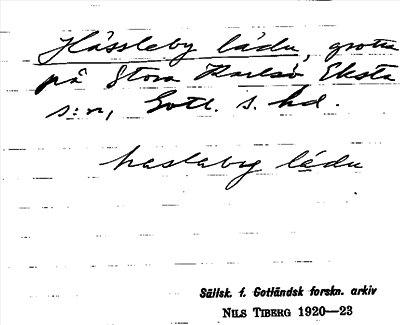 Hässleby lådu, grotta
på Stora Karlsö Eksta
s:n, Gotl. s. hd.
hasləby lådu
Sällsk. f. Gotländsk forskn. arkiv
NILS TIBERG 1920—23